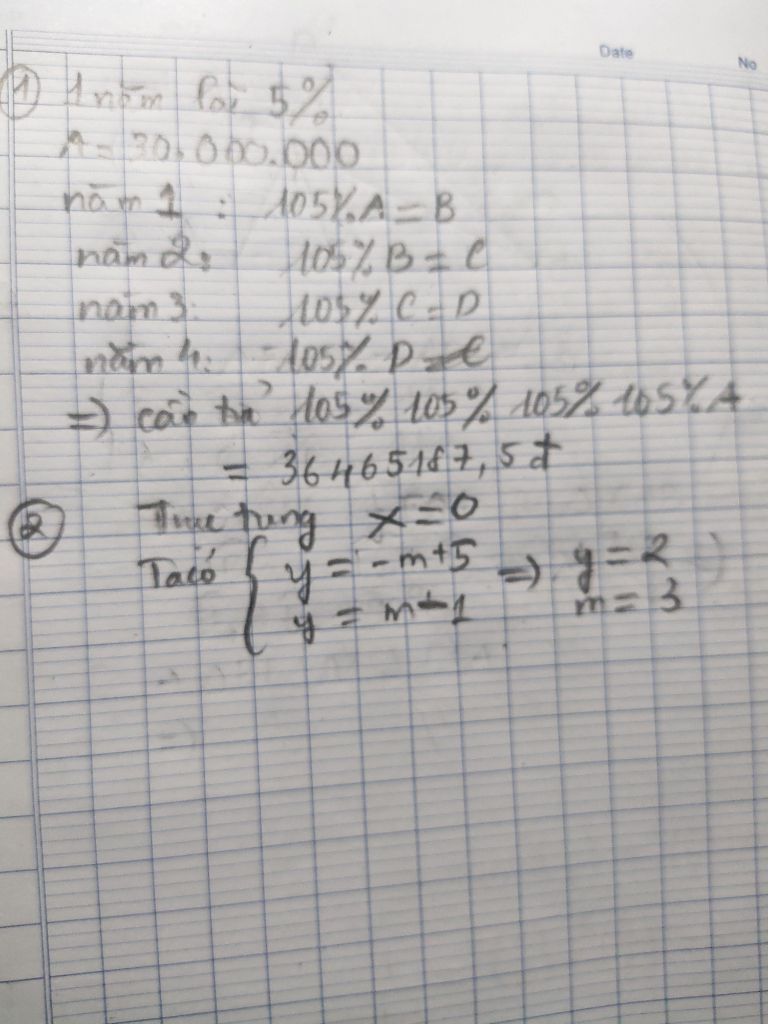 Date
No
① 1 năm lãi 5%
A = 30.000.000
năm 1 : 105% A = B
năm 2: 105% B = C
năm 3: 105% C = D
năm 4: 105% D = E
=> 105% 105% 105% 105% A
= 36465187,5 đ
② Trục tung x = 0
Ta có { y = -m+5 => y = 2
y = m-1 m = 3